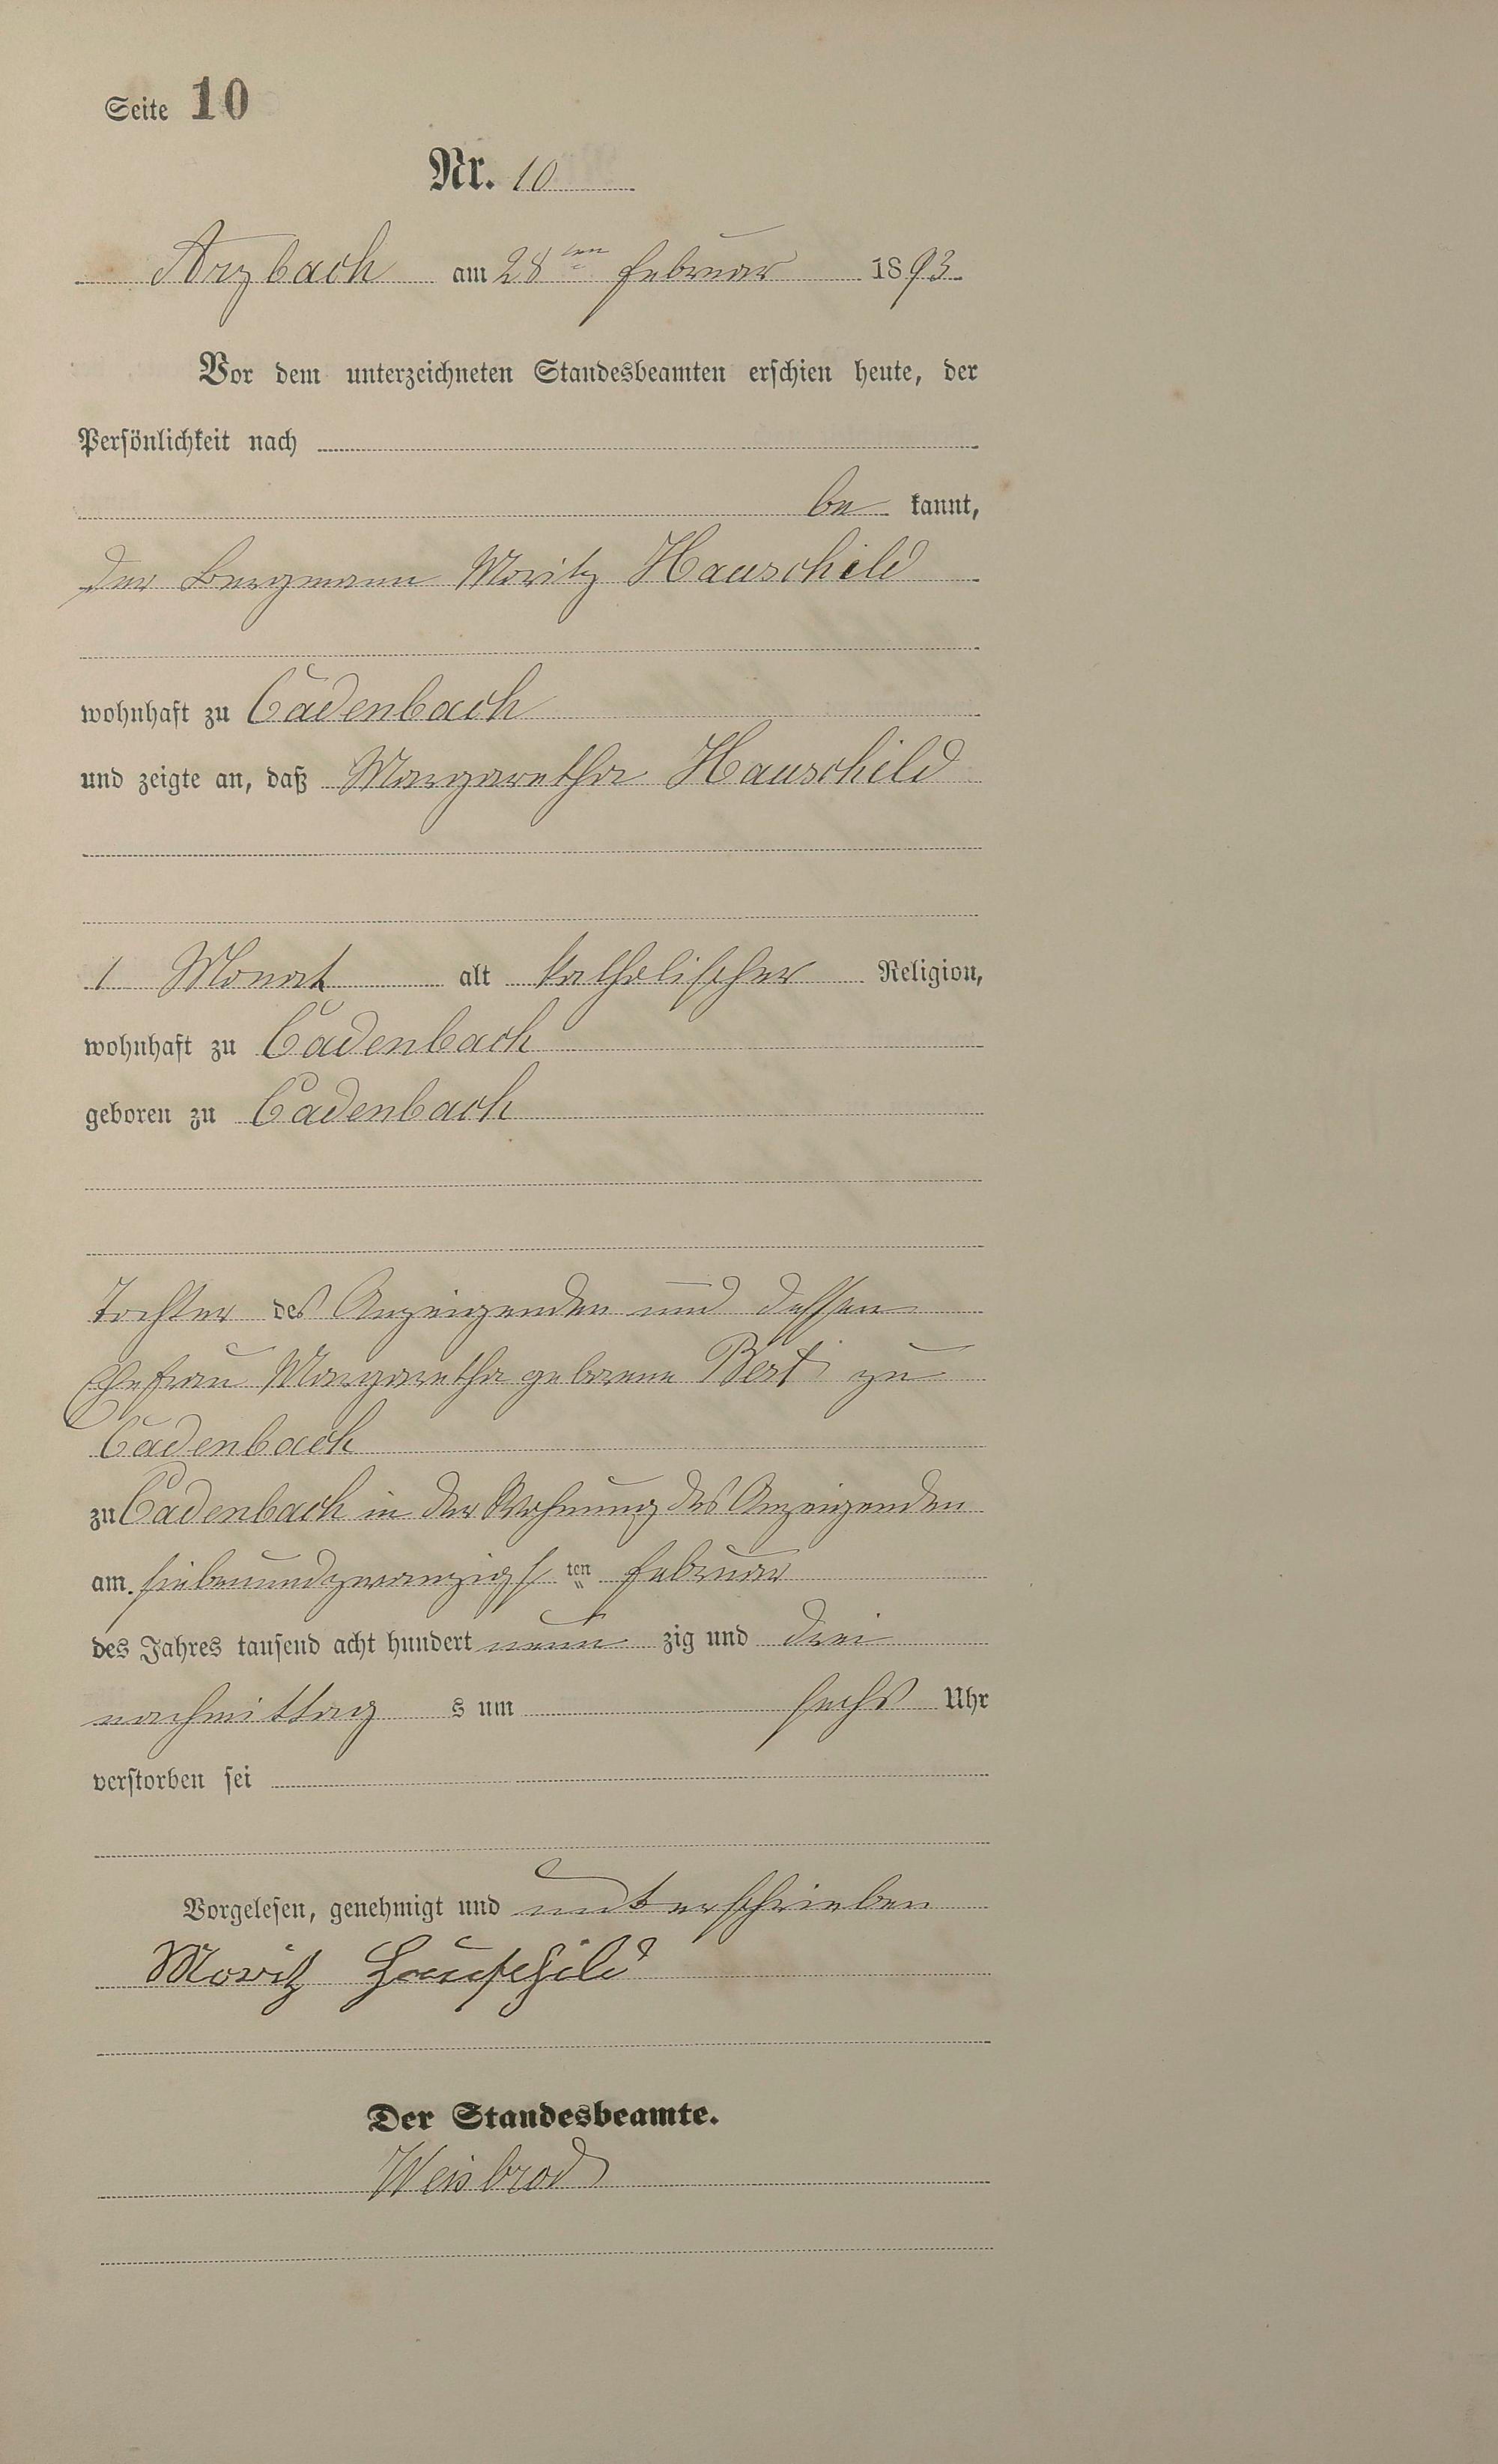 Seite 10
Nr. 10
Arzbach am 28ten Februar 1893.
Vor dem unterzeichneten Standesbeamten erschien heute, der
Persönlichkeit nach
be kannt,
der Bergmann Moritz Hauschild
wohnhaft zu Cadenbach
und zeigte an, daß Margaretha Hauschild
1 Monat alt katholischer Religion,
wohnhaft zu Cadenbach
geboren zu Cadenbach
Tochter des Anzeigenden und dessen
Ehefrau Margaretha geborene Best zu
Cadenbach
zu Cadenbach in der Wohnung des Anzeigenden
am siebenundzwanzigs ten Februar
des Jahres tausend acht hundert neun zig und drei
nachmittag s um sechs Uhr
verstorben sei
Vorgelesen, genehmigt und unterschrieben
Moritz Hauschild
Der Standesbeamte.
Weisbrod